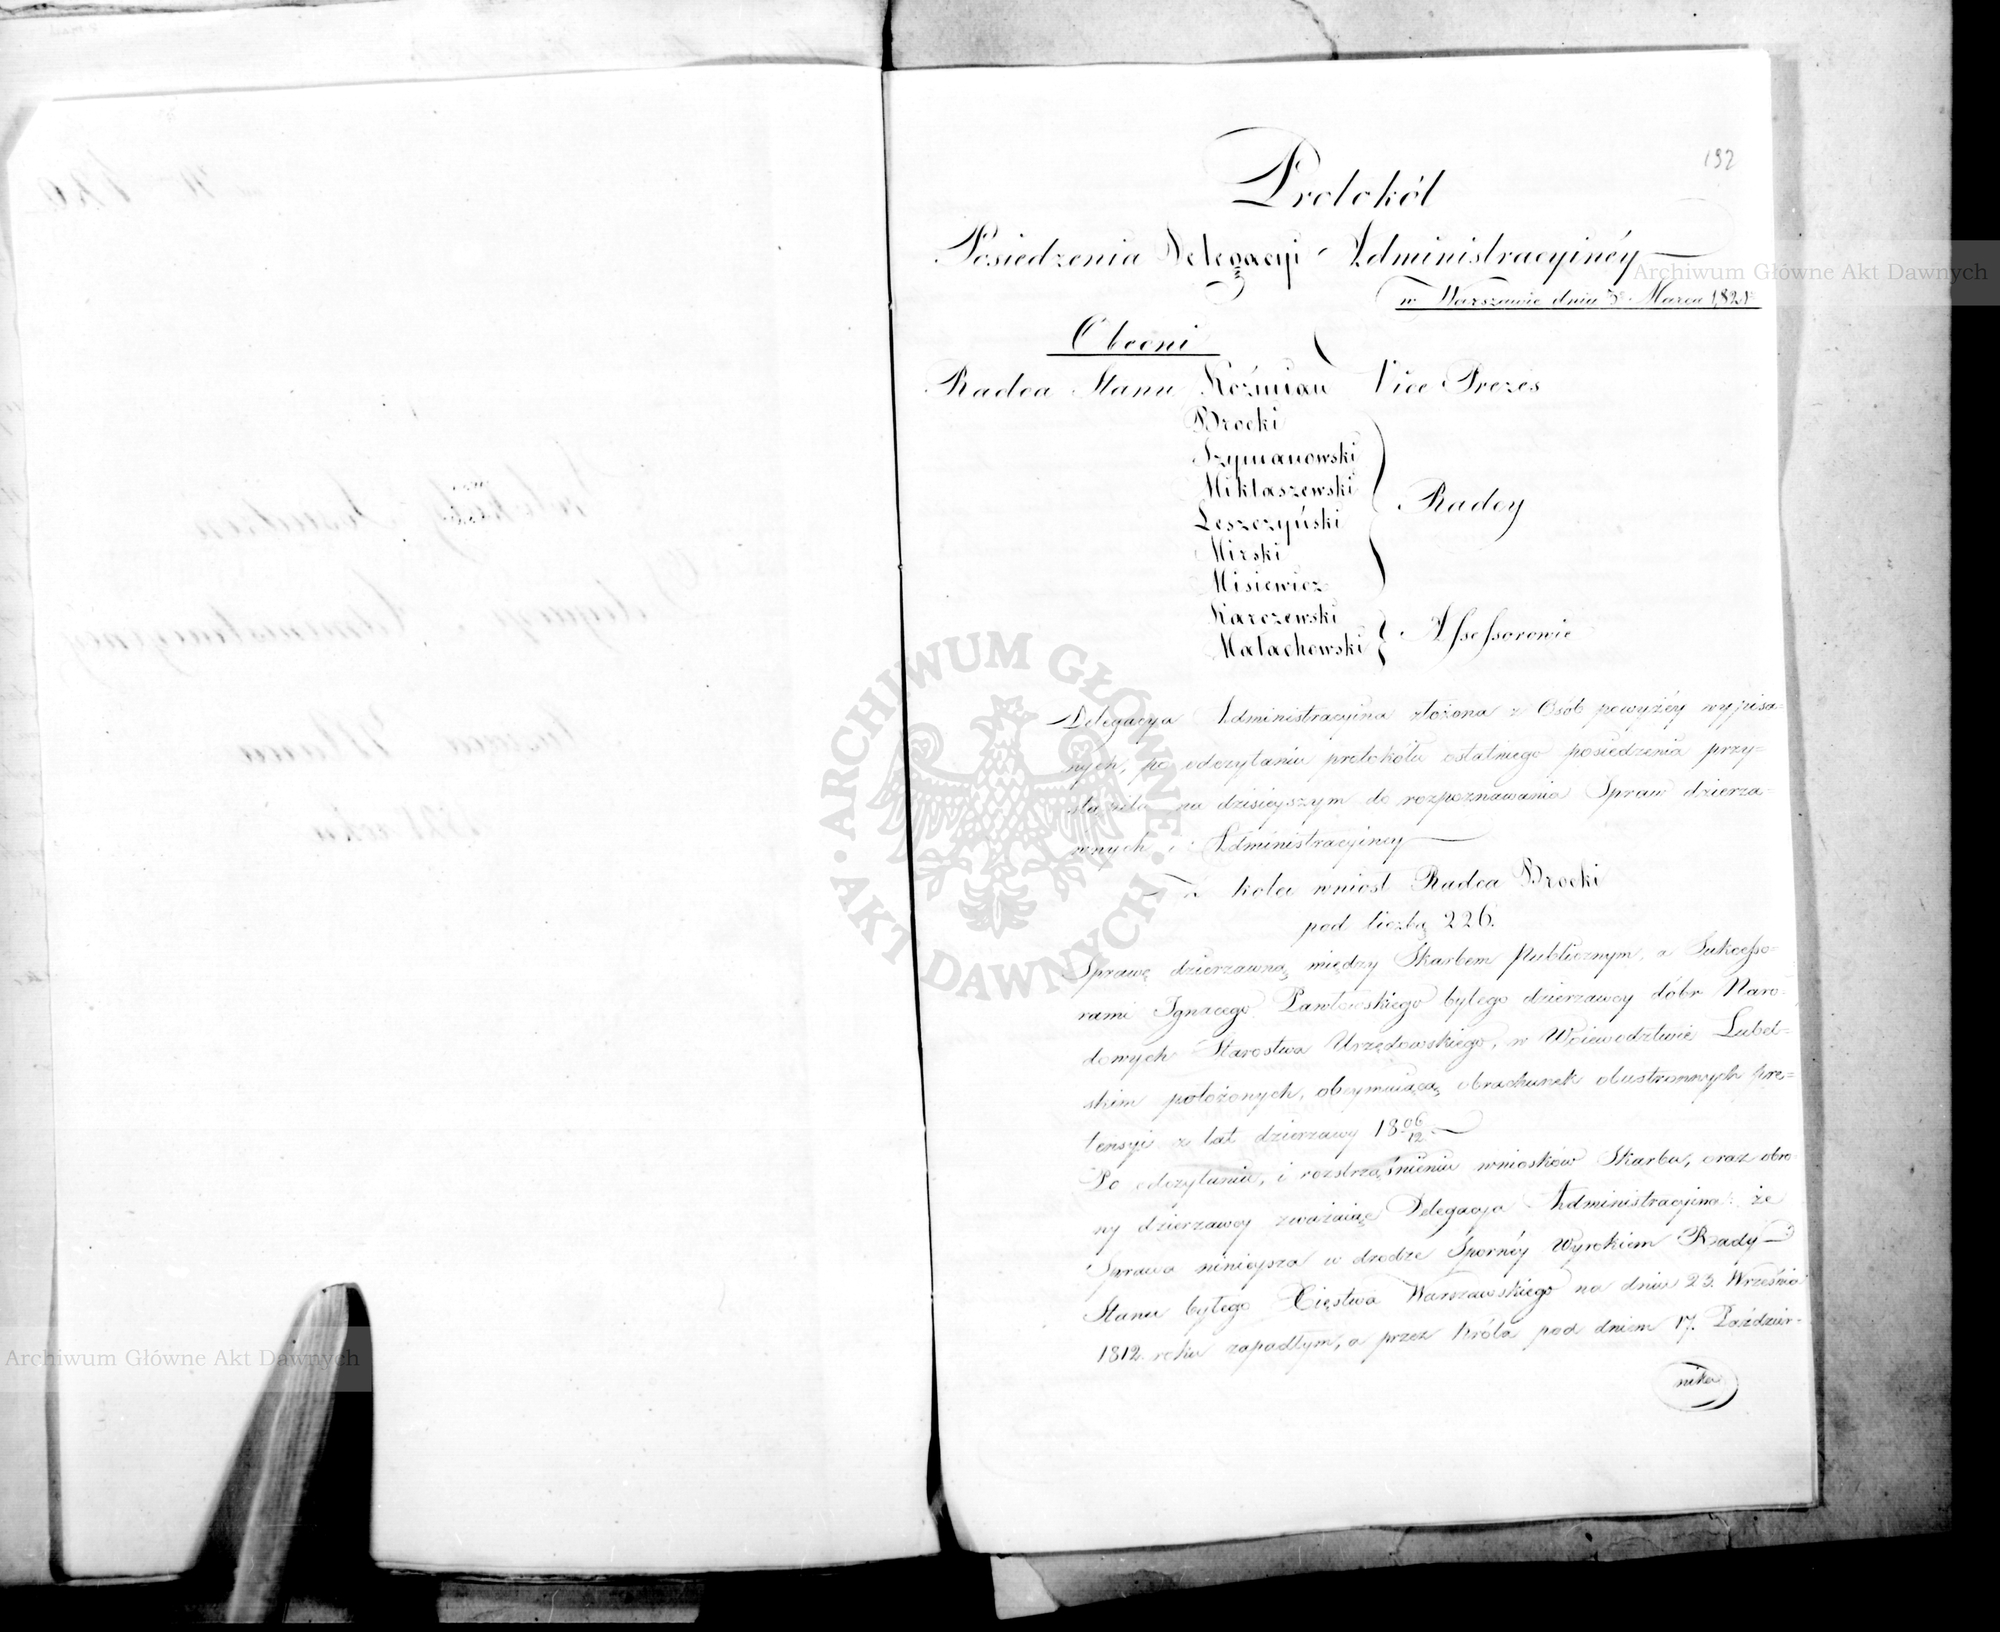 192
Protokół
Posiedzenia Delegacyi Administracyinéy
w Warszawie dnia 3º Marca 1821.
Obecni
Radca Stanu Koźmian Vice Prezes
Brocki
Szymanowski
Mikłaszewski
Leszczyński
Radcy
Mirski
Misiewicz
Karczewski
Małachowski
Assessorowie
Delegacya Administracyina złożona z Osób powyżéy wypisa=
nych, po odczytaniu protokółu ostatniego posiedzenia przy=
stąpiła na dzisieyszym do rozpoznawania Spraw dzierza=
wnych i Administracyiney
Z kolei wniosł Radca Brocki
pod liczbą 226.
Sprawę dzierzawną między Skarbem Publicznym, a Sukcesso=
rami Ignacego Pawłowskiego byłego dzierzawcy dóbr Naro=
dowych Starostwa Urzędowskiego, w Woiewodztwie Lubel=
skim położonych, obeymuiącą obrachunek obustronnych pre=
tensyi z lat dzierzawy 1806/12
Po odczytaniu, i roztrząśnieniu wniosków Skarbu, oraz obro=
ny dzierzawcy zważaiąc Delegacya Administracyina: że
Sprawa ninieysza w drodze Spornéy Wyrokiem Rady
Stanu byłego Xięstwa Warszawskiego na dniu 23. Września
1812. roku zapadłym, a przez Króla pod dniem 17. Paździer=
nika
Archiwum Główne Akt Dawnych
Archiwum Główne Akt Dawnych
ARCHIWUM GŁÓWNE AKT DAWNYCH